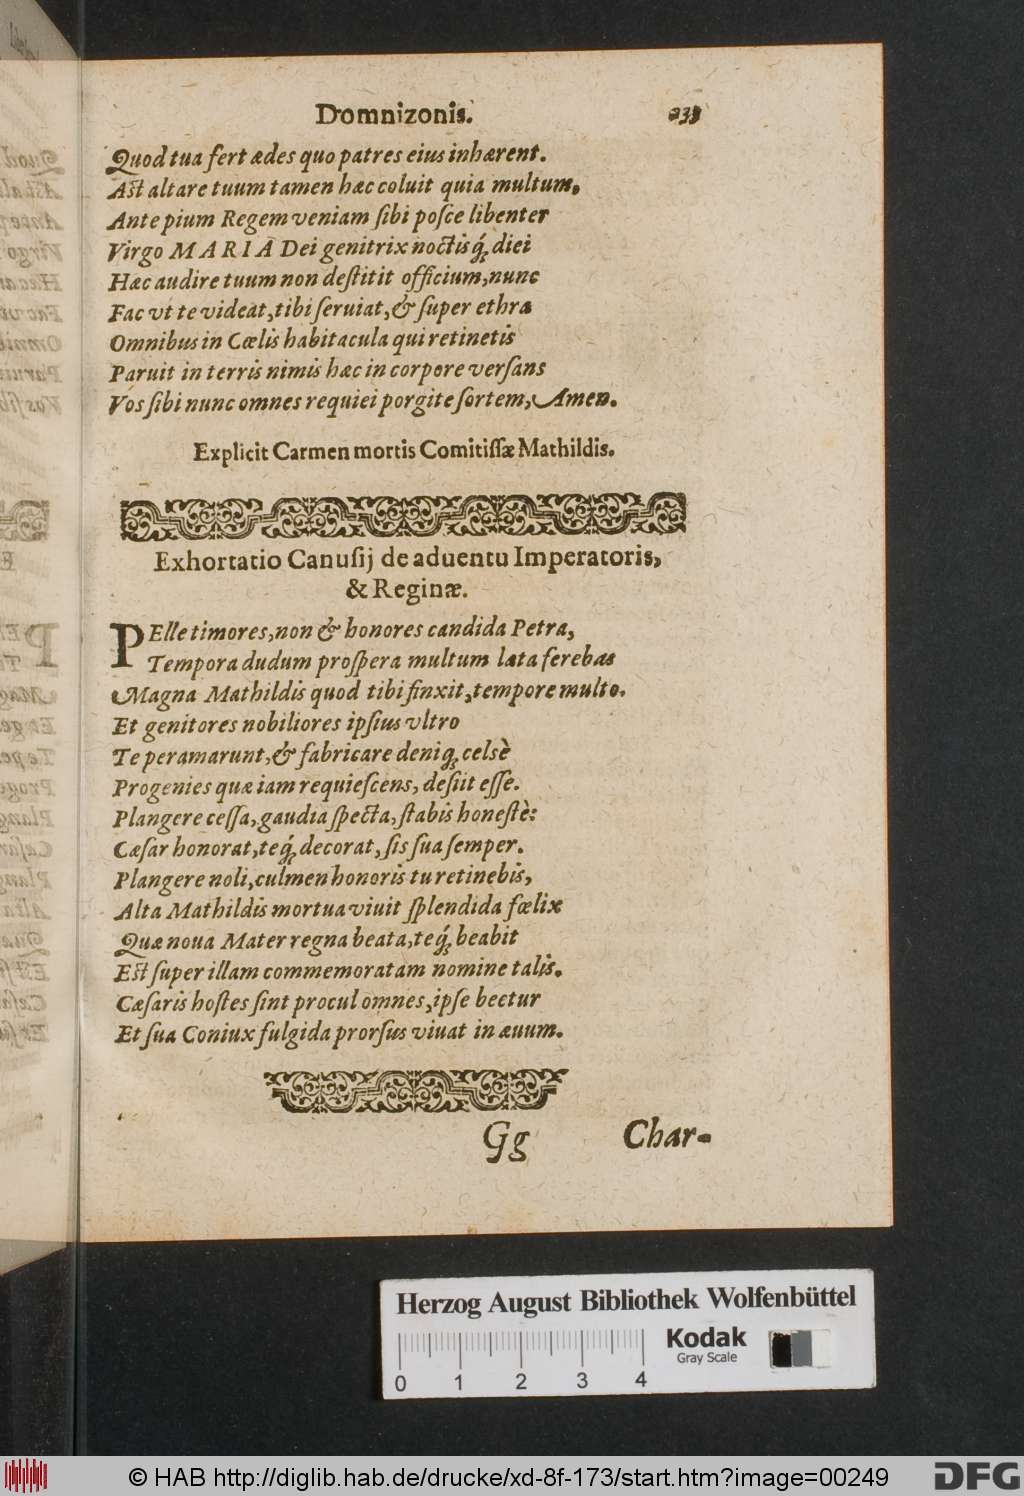 Domnizonis. 233
Quod tua fert ædes quo patres eius inhærent.
Ast altare tuum tamen hæc coluit quia multum,
Ante pium Regem veniam sibi posce libenter
Virgo MARIA Dei genitrix noctisq́; diei
Hæc audire tuum non destitit officium, nunc
Fac vt te videat, tibi seruiat, & super ethra
Omnibus in Cœlis habitacula qui retinetis
Paruit in terris nimis hæc in corpore versans
Vos sibi nunc omnes requiei porgite sortem, Amen.
Explicit Carmen mortis Comitissæ Mathildis.
Exhortatio Canusij de aduentu Imperatoris,
& Reginæ.
PElle timores, non & honores candida Petra,
Tempora dudum prospera multum lata ferebas
Magna Mathildis quod tibi finxit, tempore multo.
Et genitores nobiliores ipsius vltro
Te peramarunt, & fabricare deniq; celsè
Progenies quæ iam requiescens, desiit esse.
Plangere cessa, gaudia specta, stabis honestè:
Cæsar honorat, teq́; decorat, sis sua semper.
Plangere noli, culmen honoris tu retinebis,
Alta Mathildis mortua viuit splendida fœlix
Quæ noua Mater regna beata, teq́; beabit
Est super illam commemoratam nomine talis.
Cæsaris hostes sint procul omnes, ipse beetur
Et sua Coniux fulgida prorsus viuat in æuum.
Gg Char-
Herzog August Bibliothek Wolfenbüttel
Kodak
Gray Scale
0 1 2 3 4
© HAB http://diglib.hab.de/drucke/xd-8f-173/start.htm?image=00249
DFG